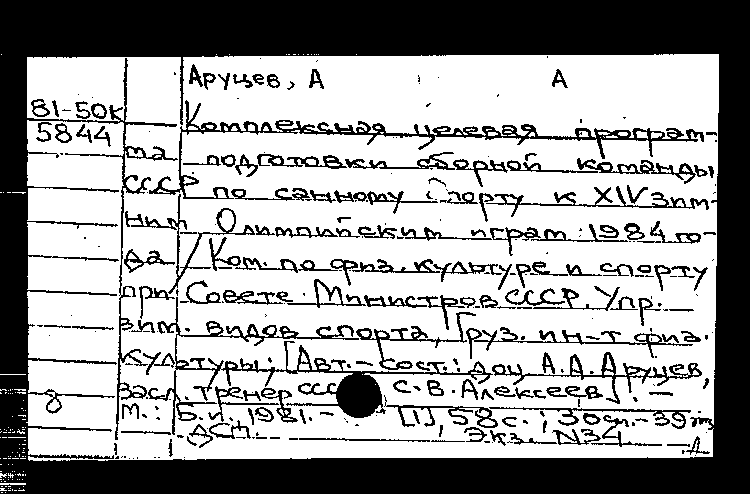 Аруцев, А А
81-50к
5844
Комплексная целевая програм-
ма подготовки сборной команды
СССР по санному спорту к XIV зим-
ним Олимпийским играм 1984 го-
да / Ком. по физ. культуре и спорту
при Совете Министров СССР. Упр.
зим. видов спорта, Груз. ин-т физ.
культуры; [Авт.-сост.: доц А.А. Аруцев,
засл. тренер СССР С.В. Алексеев]. —
8 М.: Б.и., 1981. - [1], 58 с.;
ДСП. Экз. N34